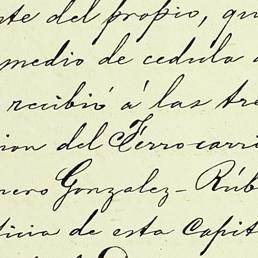 te del propio, qu
medio de cedula a
recibió á las tre
ion del Ferrocarri
nero Gonzalez-Rúb
ticia de esta Capit